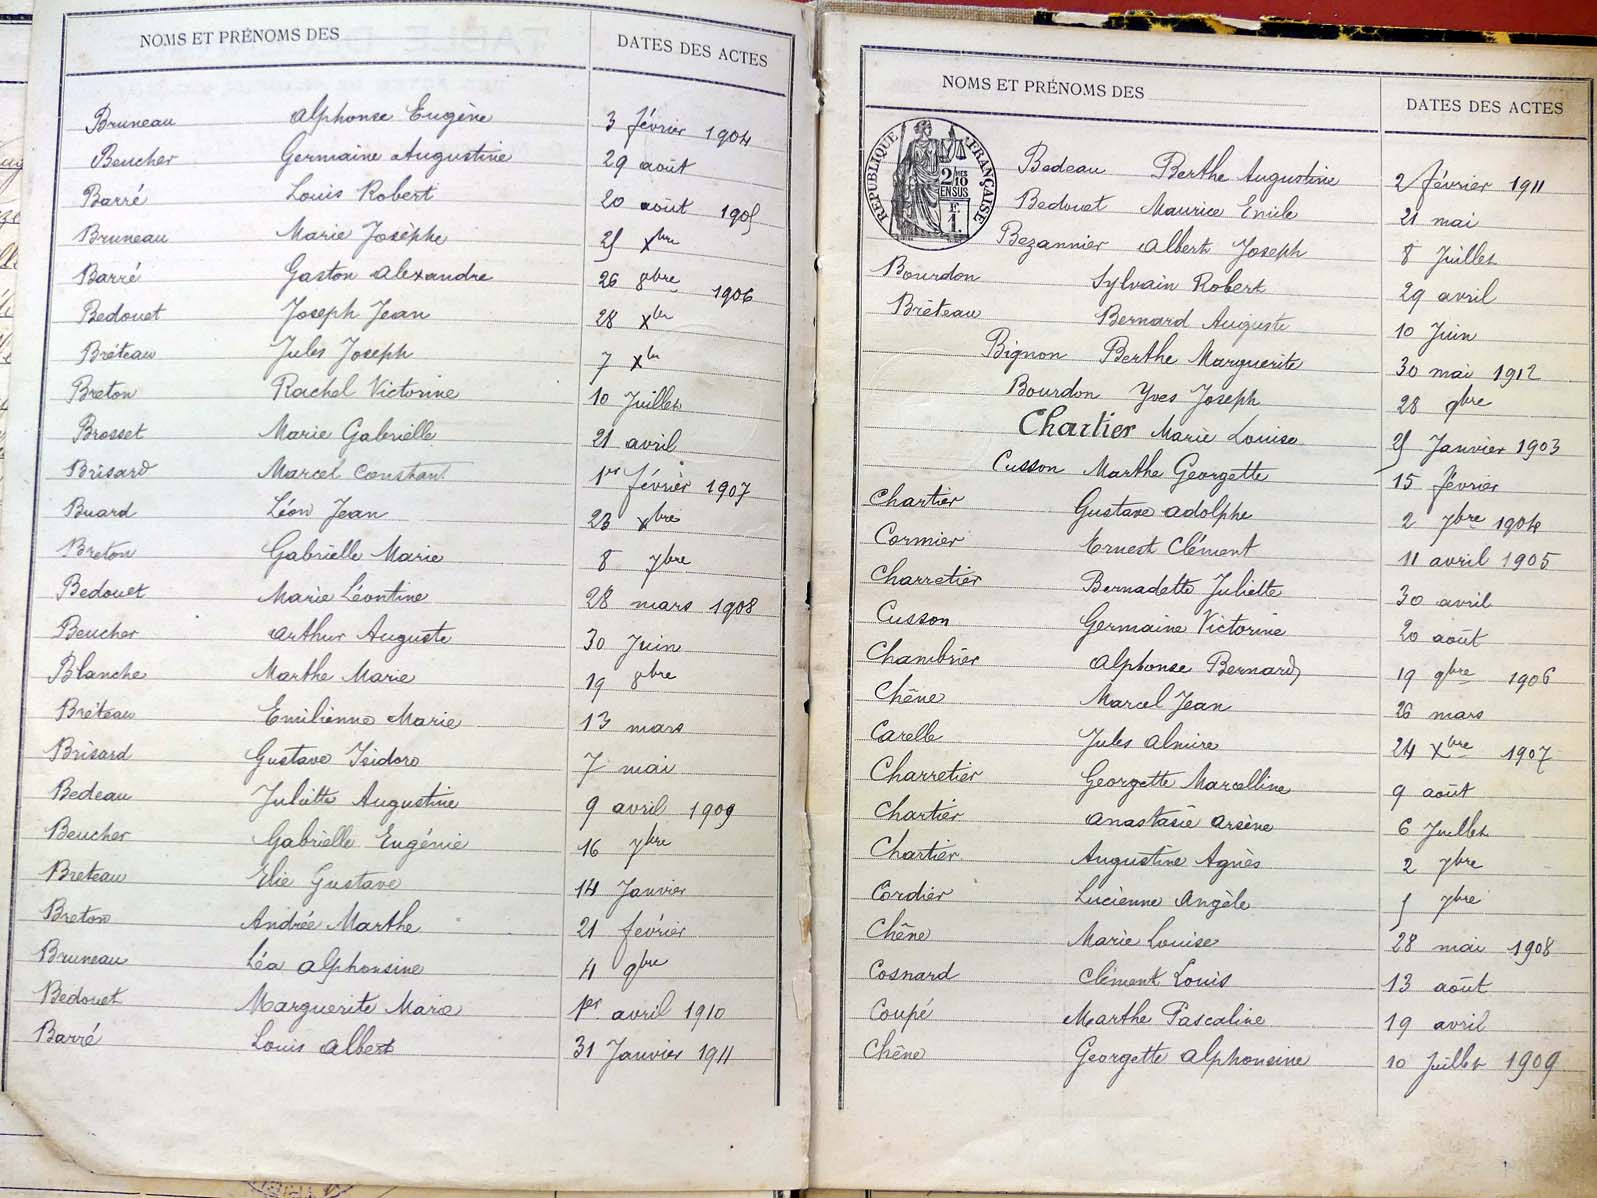 NOMS ET PRÉNOMS DES DATES DES ACTES
Bruneau Alphonse Eugène 3 février 1904
Beucher Germaine Augustine 29 août
Barré Louis Robert 20 août 1905
Bruneau Marie Josèphe 25 Xbre
Barré Gaston Alexandre 26 8bre 1906
Bedouet Joseph Jean 28 Xbre
Bréteau Jules Joseph 7 Xbre
Breton Rachel Victorine 10 Juillet
Brosset Marie Gabrielle 21 avril
Brisard Marcel Constant 1er février 1907
Buard Léon Jean 23 Xbre
Breton Gabrielle Marie 8 7bre
Bedouet Marie Léontine 28 mars 1908
Beucher Arthur Auguste 30 Juin
Blanche Marthe Marie 19 8bre
Bréteau Emilienne Marie 13 mars
Brisard Gustave Isidore 7 mai
Bedeau Juliette Augustine 9 avril 1909
Beucher Gabrielle Eugénie 16 7bre
Breteau Elie Gustave 14 Janvier
Breton Andrée Marthe 21 février
Bruneau Léa Alphonsine 4 9bre
Bedouet Marguerite Marie 1er avril 1910
Barré Louis Albert 31 Janvier 1911
NOMS ET PRÉNOMS DES DATES DES ACTES
RÉPUBLIQUE FRANÇAISE
2 MES
10
EN SUS
F
1.
Bedeau Berthe Augustine 2 février 1911
Bedouet Maurice Emile 21 mai
Bezannier Albert Joseph 8 Juillet
Bourdon Sylvain Robert 29 avril
Bréteau Bernard Auguste 10 Juin
Bignon Berthe Marguerite 30 mai 1912
Bourdon Yves Joseph 28 9bre
Chartier Marie Louise 25 Janvier 1903
Cusson Marthe Georgette 15 février
Chartier Gustave Adolphe 2 7bre 1904
Cormier Ernest Clément 11 avril 1905
Charretier Bernadette Juliette 30 avril
Cusson Germaine Victorine 20 août
Chambrier Alphonse Bernard 19 9bre 1906
Chêne Marcel Jean 26 mars
Carelle Jules Almire 24 Xbre 1907
Charretier Georgette Marcelline 9 août
Chartier Anastasie Arsène 6 Juillet
Chartier Augustine Agnès 2 7bre
Cordier Lucienne Angèle 5 7bre
Chêne Marie Louise 28 mai 1908
Cosnard Clément Louis 13 août
Coupé Marthe Pascaline 19 avril
Chêne Georgette Alphonsine 10 Juillet 1909